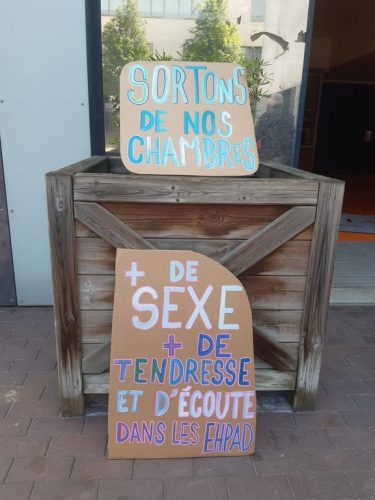 SORTONS
DE NOS
CHAMBRES
+ DE
SEXE
+ DE
TENDRESSE
ET D'ÉCOUTE
DANS LES EHPAD